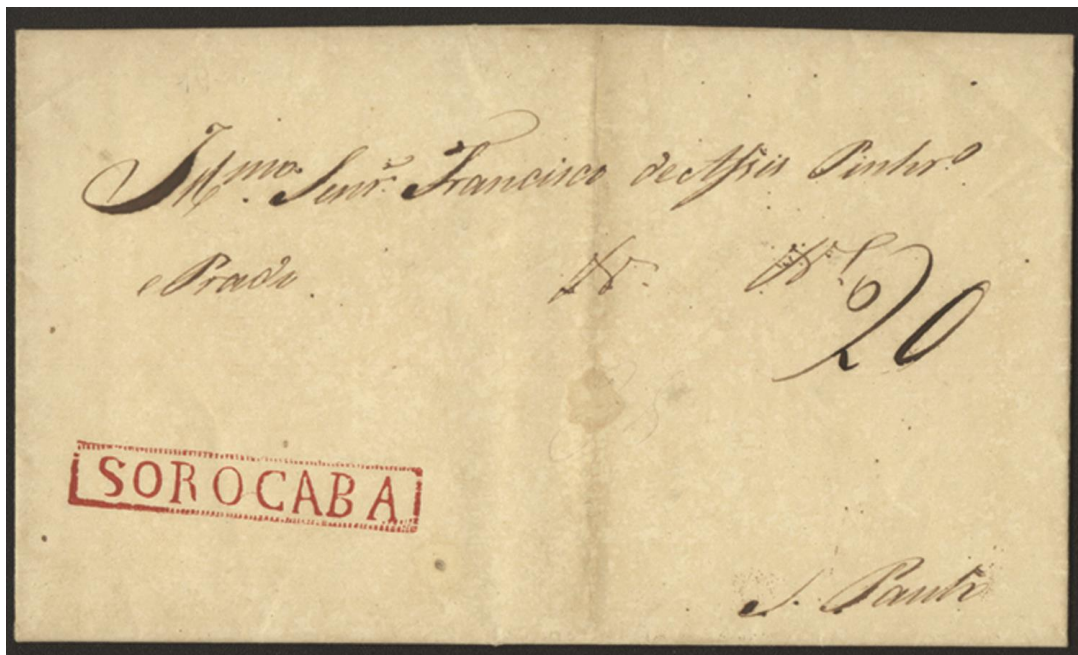 Illmo. Senr. Francisco de Assis Pinhro
e Prado
20
SOROCABA
S. Paulo